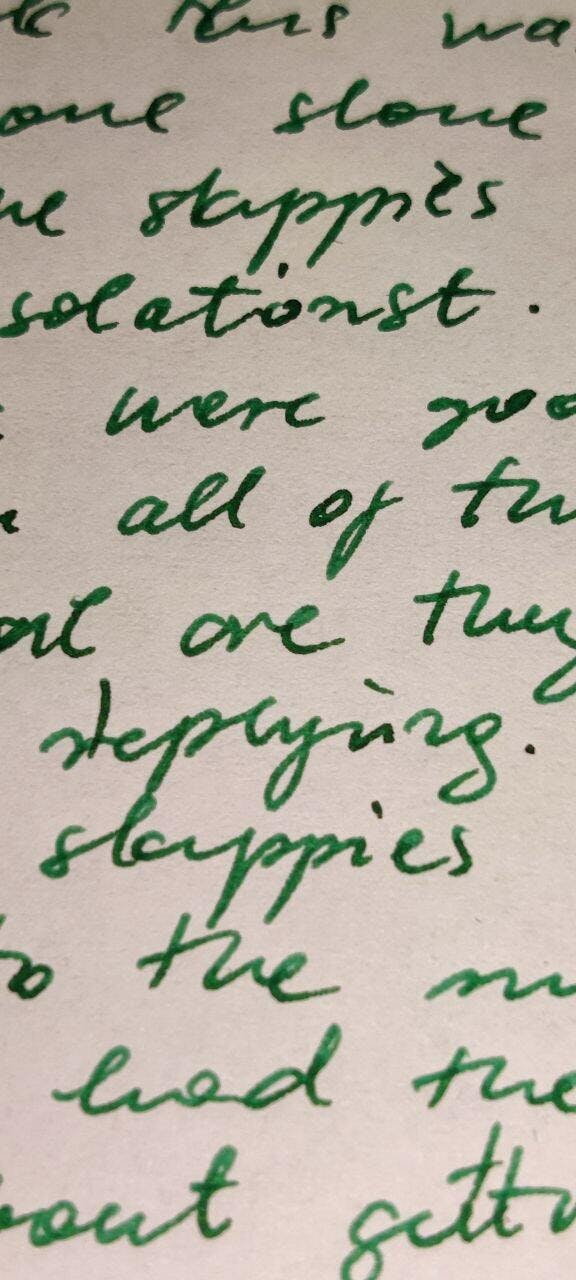 this wa
one slone
slappies
solationst.
were goo
all of th
are they
replying.
slappies
to the m
had the
bout gett